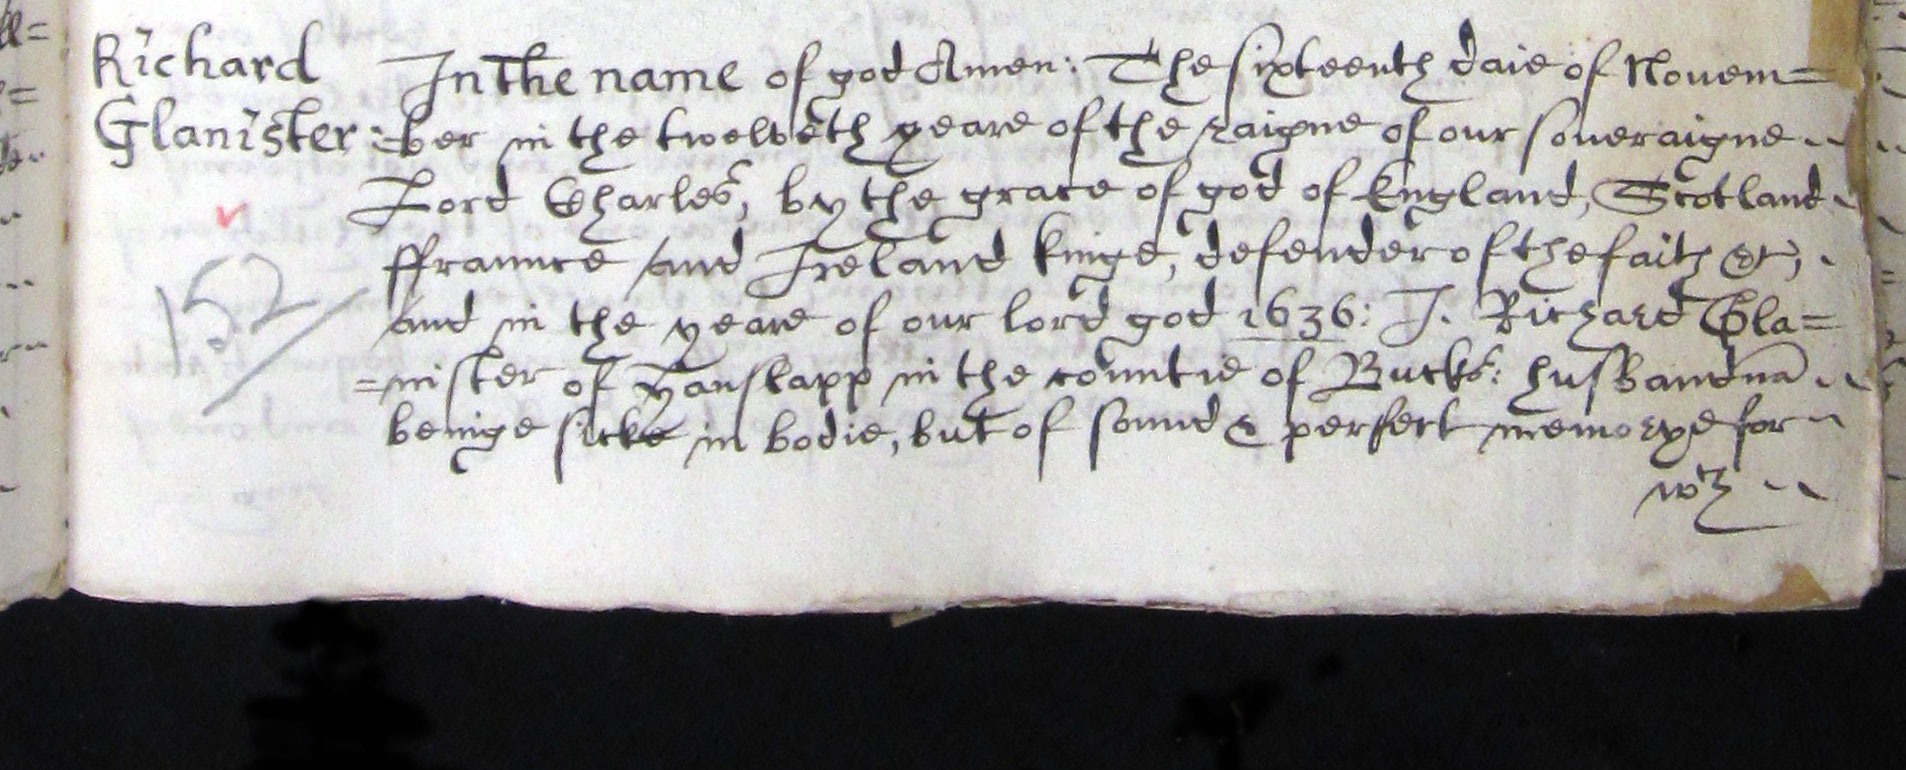 Richard
Glanister
152
In the name of god Amen: The sixteenth daie of Novem=
=ber in the twelveth yeare of the raigne of our soueraigne
Lord Charles, by the grace of god of England, Scotland
ffraunce and Ireland kinge, defender of the faith &c,
and in the yeare of our lord god 1636: I. Richard Gla=
=nister of Hanslapp in the countie of Bucks: husbandmã
beinge sicke in bodie, but of sound & perfect memorye for
wth